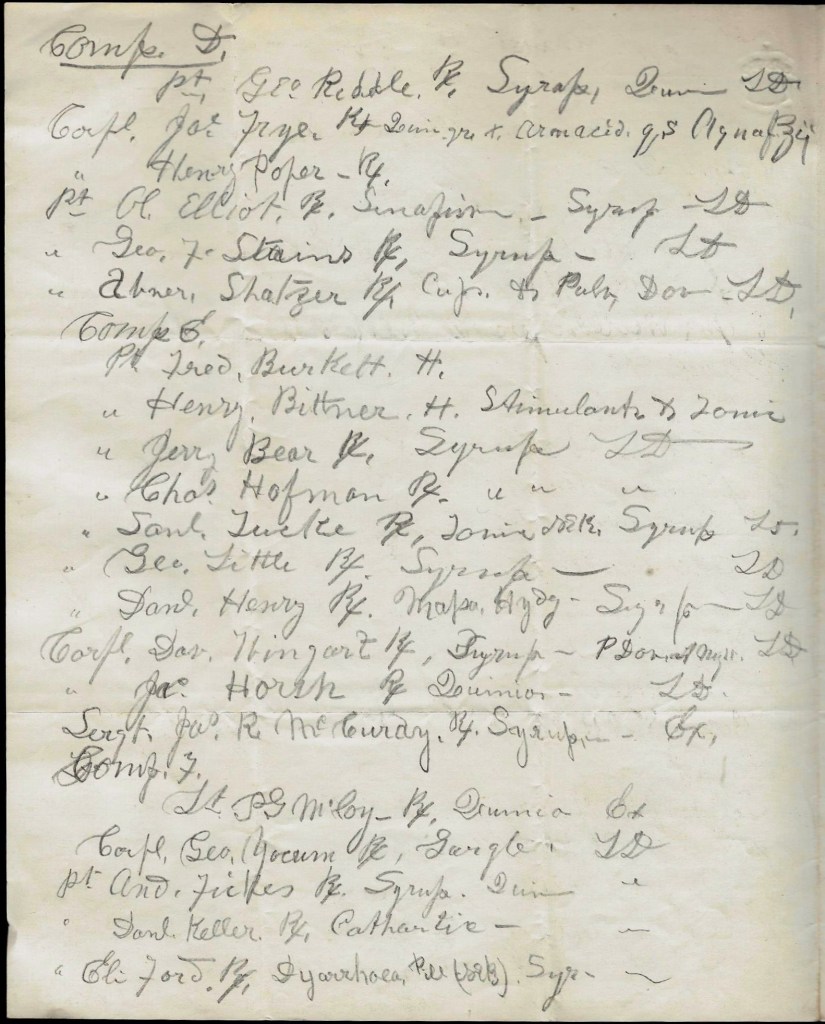 Comp. D.
Pt, Geo Riddle. Rx, Syrup, Quin LD
Corpl. Jas Fryer Rx Quin. grx. Arm acid. q,s Aqua f ʒij
" Henry Poper - Rx,
Pt Ol. Elliot, Rx. Sinapism - Syrup - LD
" Geo. F. Stains Rx, Syrup - LD
" Abner, Shatzer Rx, Cups. & Pulv, Dov - LD,
Comp E,
Pt Fred, Burkett. H.
" Henry, Bittner. H. Stimulants & Tonic
" Jerry Bear Rx, Syrup LD
" Chas. Hofman Rx. " " "
" Saml. Rx, Tonic Syrup LD.
" Geo. Little Rx. Syrup — LD
" Danl. Henry Rx. Massa, Hydg - Syrup - LD
Corpl, Dav. Wingart Rx, Syrup - P Dov. LD
" Jac. Horsh Rx Quinia - LD.
Sergt. Jas. R. McCurdy, Rx. Syrup, - Ex,
Comp. F.
Lt. P G McCoy - Rx, Quinia Ex
Corpl, Geo, Yocum Rx, Gargle. LD
Pt And. Fickes Rx. Syrup. Quin "
" Danl. Keller. Rx, Cathartic - "
" Eli Ford. Rx, Dyarrhoea, Pill Syr - "